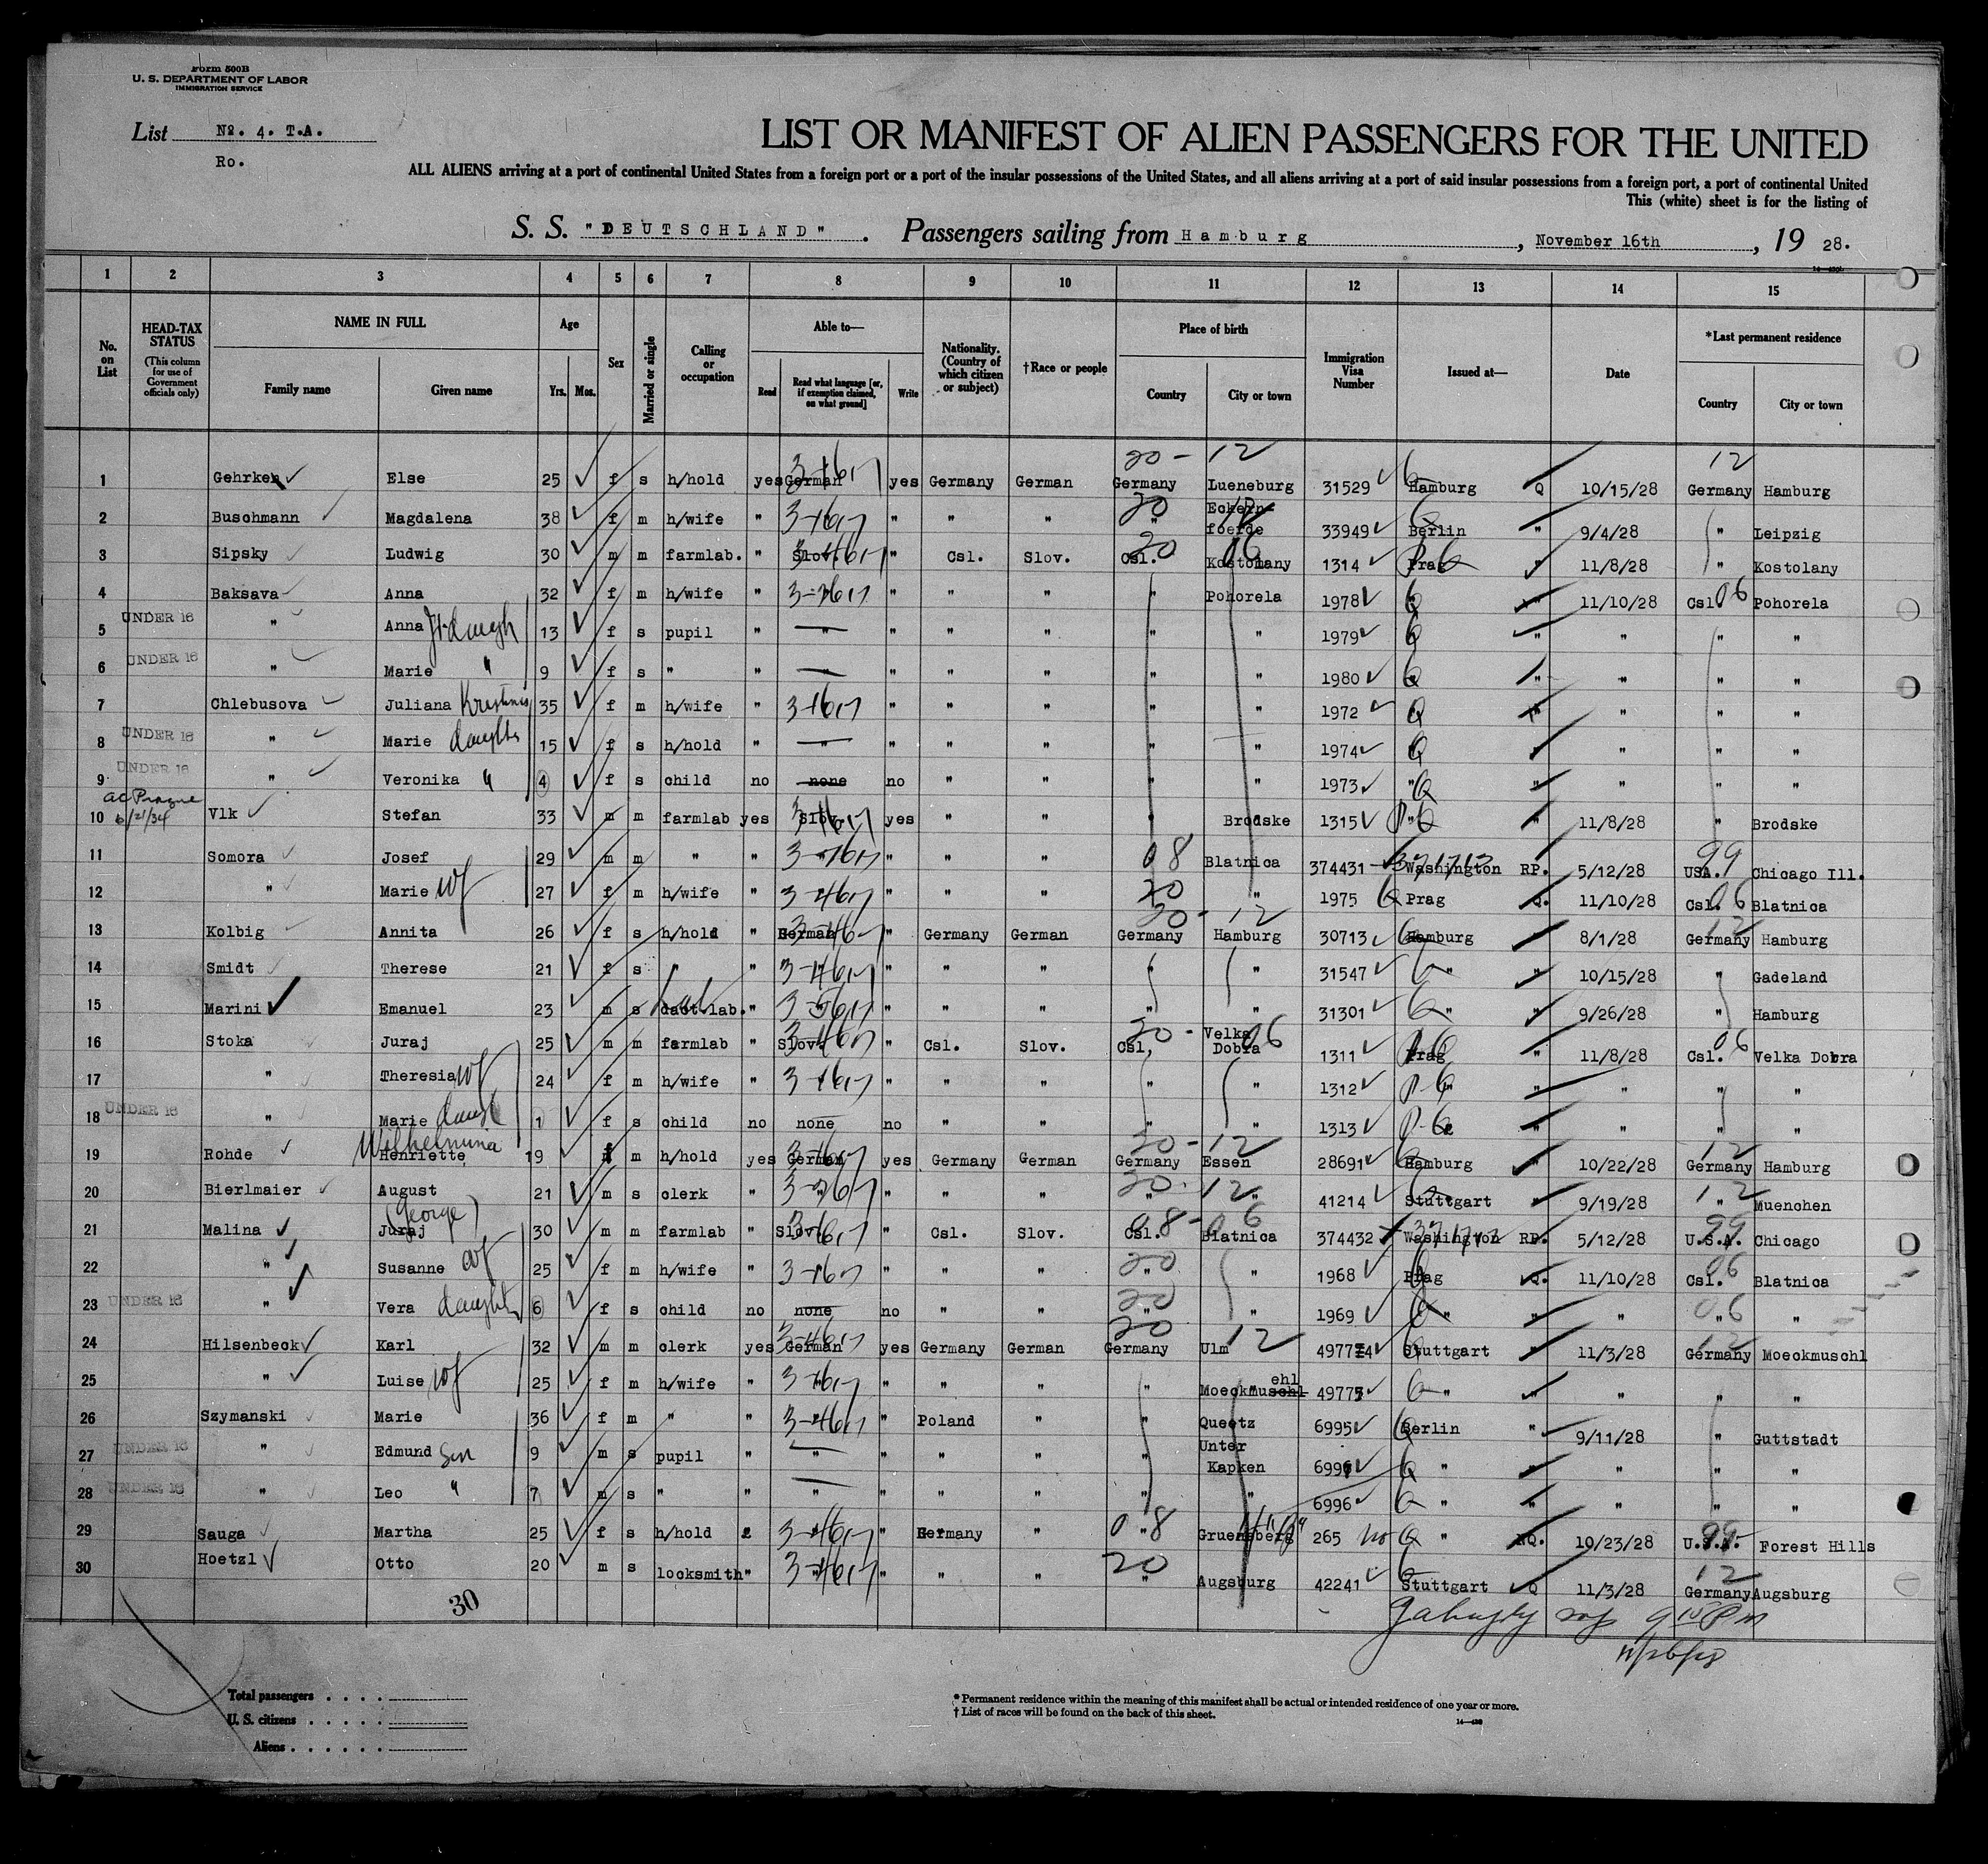 Form 500B
U. S. DEPARTMENT OF LABOR
IMMIGRATION SERVICE
List No. 4. T.A.
Ro.
LIST OR MANIFEST OF ALIEN PASSENGERS FOR THE UNITED
ALL ALIENS arriving at a port of continental United States from a foreign port or a port of the insular possessions of the United States, and all aliens arriving at a port of said insular possessions from a foreign port, a port of continental United
This (white) sheet is for the listing of
S. S. "DEUTSCHLAND" . Passengers sailing from Hamburg , November 16th , 19 28.
1 2 3 4 5 6 7 8 9 10 11 12 13 14 15
No. on List
HEAD-TAX STATUS (This column for use of Government officials only)
NAME IN FULL Family name Given name
Age Yrs. Mos.
Sex
Married or single
Calling or occupation
Able to— Read Read what language [or, if exemption claimed, on what ground] Write
Nationality. (Country of which citizen or subject)
†Race or people
Place of birth Country City or town
Immigration Visa Number
Issued at—
Date
*Last permanent residence Country City or town
20 - 12 12
1 Gehrken Else 25 f s h/hold yes German yes Germany German Germany Lueneburg 31529 Hamburg Q 10/15/28 Germany Hamburg
2 Buschmann Magdalena 38 f m h/wife " " " " " Eckern- foerde 33949 Berlin " 9/4/28 " Leipzig
3 Sipsky Ludwig 30 m m farmlab. " Slov. " Csl. Slov. Csl. Kostolany 1314 Prag " 11/8/28 " Kostolany
4 Baksava Anna 32 f m h/wife " " " " " Pohorela 1978 " 11/10/28 Csl. Pohorela
UNDER 16
5 " Anna daugh 13 f s pupil " " " " " " " 1979 " " " "
UNDER 16
6 " Marie " 9 f s " " " " " " " 1980 " " " " "
7 Chlebusova Juliana 35 f m h/wife " " " " " " 1972 " " " "
UNDER 16
8 " Marie daughter 15 f s h/hold " " " " " " " 1974 " " "
UNDER 16
9 " Veronika " 4 f s child no none no " " " " 1973 " " " " "
ac Prague 6/21/34
10 Vlk Stefan 33 m m farmlab yes Slov. yes " " " Brodske 1315 " " 11/8/28 " Brodske
11 Somora Josef 29 m m " " " " " " Blatnica 374431 Washington RP. 5/12/28 USA. Chicago Ill.
12 " Marie wf 27 f m h/wife " " " " " " 1975 Prag Q. 11/10/28 Csl. Blatnica
13 Kolbig Annita 26 f s h/hold " German " Germany German Germany Hamburg 30713 Hamburg " 8/1/28 Germany Hamburg
14 Smidt Therese 21 f s " " " " " " " " 31547 " " 10/15/28 " Gadeland
15 Marini Emanuel 23 m s lab. " " " " " " " 31301 " " 9/26/28 " Hamburg
16 Stoka Juraj 25 m m farmlab " Slov. " Csl. Slov. Csl. Velka Dobra 1311 Prag " 11/8/28 Csl. Velka Dobra
17 " Theresia wf 24 f m h/wife " " " " " " 1312 " " " " "
UNDER 16
18 " Marie daugh 1 f s child no none no " " " " 1313 " " " "
19 Rohde Wilhelmina Henriette 19 f m h/hold yes German yes Germany German Germany Essen 28691 Hamburg " 10/22/28 Germany Hamburg
20 Bierlmaier August 21 m s clerk " " " " " " " 41214 Stuttgart " 9/19/28 " Muenchen
21 Malina (George) Juraj 30 m m farmlab " Slov. " Csl. Slov. Csl. Blatnica 374432 Washington RP. 5/12/28 U.S.A. Chicago
22 " Susanne wf 25 f m h/wife " " " " " " " 1968 Prag Q. 11/10/28 Csl. Blatnica
UNDER 16
23 " Vera daught 6 f s child no none no " " " " 1969 " " " " "
24 Hilsenbeck Karl 32 m m clerk yes German yes Germany German Germany Ulm 49774 Stuttgart " 11/3/28 Germany Moeckmuschl
25 " Luise wf 25 f m h/wife " " " " " " Moeckmuschl ehl 49775 " " " " "
26 Szymanski Marie 36 f m " " " " Poland " " Queetz 6995 Berlin " 9/11/28 " Guttstadt
UNDER 16
27 " Edmund Son 9 m s pupil " " " " " " Unter Kapken " " " " "
UNDER 16
28 " Leo " 7 m s " " " " " " " " 6996 " " " " "
29 Sauga Martha 25 f s h/hold " " Germany " " Gruensberg 265 no " NQ. 10/23/28 U.S.A. Forest Hills
30 Hoetzl Otto 20 m s locksmith " " " " " " Augsburg 42241 Stuttgart Q 11/3/28 Germany Augsburg
30
Total passengers . . . .
U. S. citizens . . . . .
Aliens . . . . . .
* Permanent residence within the meaning of this manifest shall be actual or intended residence of one year or more.
† List of races will be found on the back of this sheet.